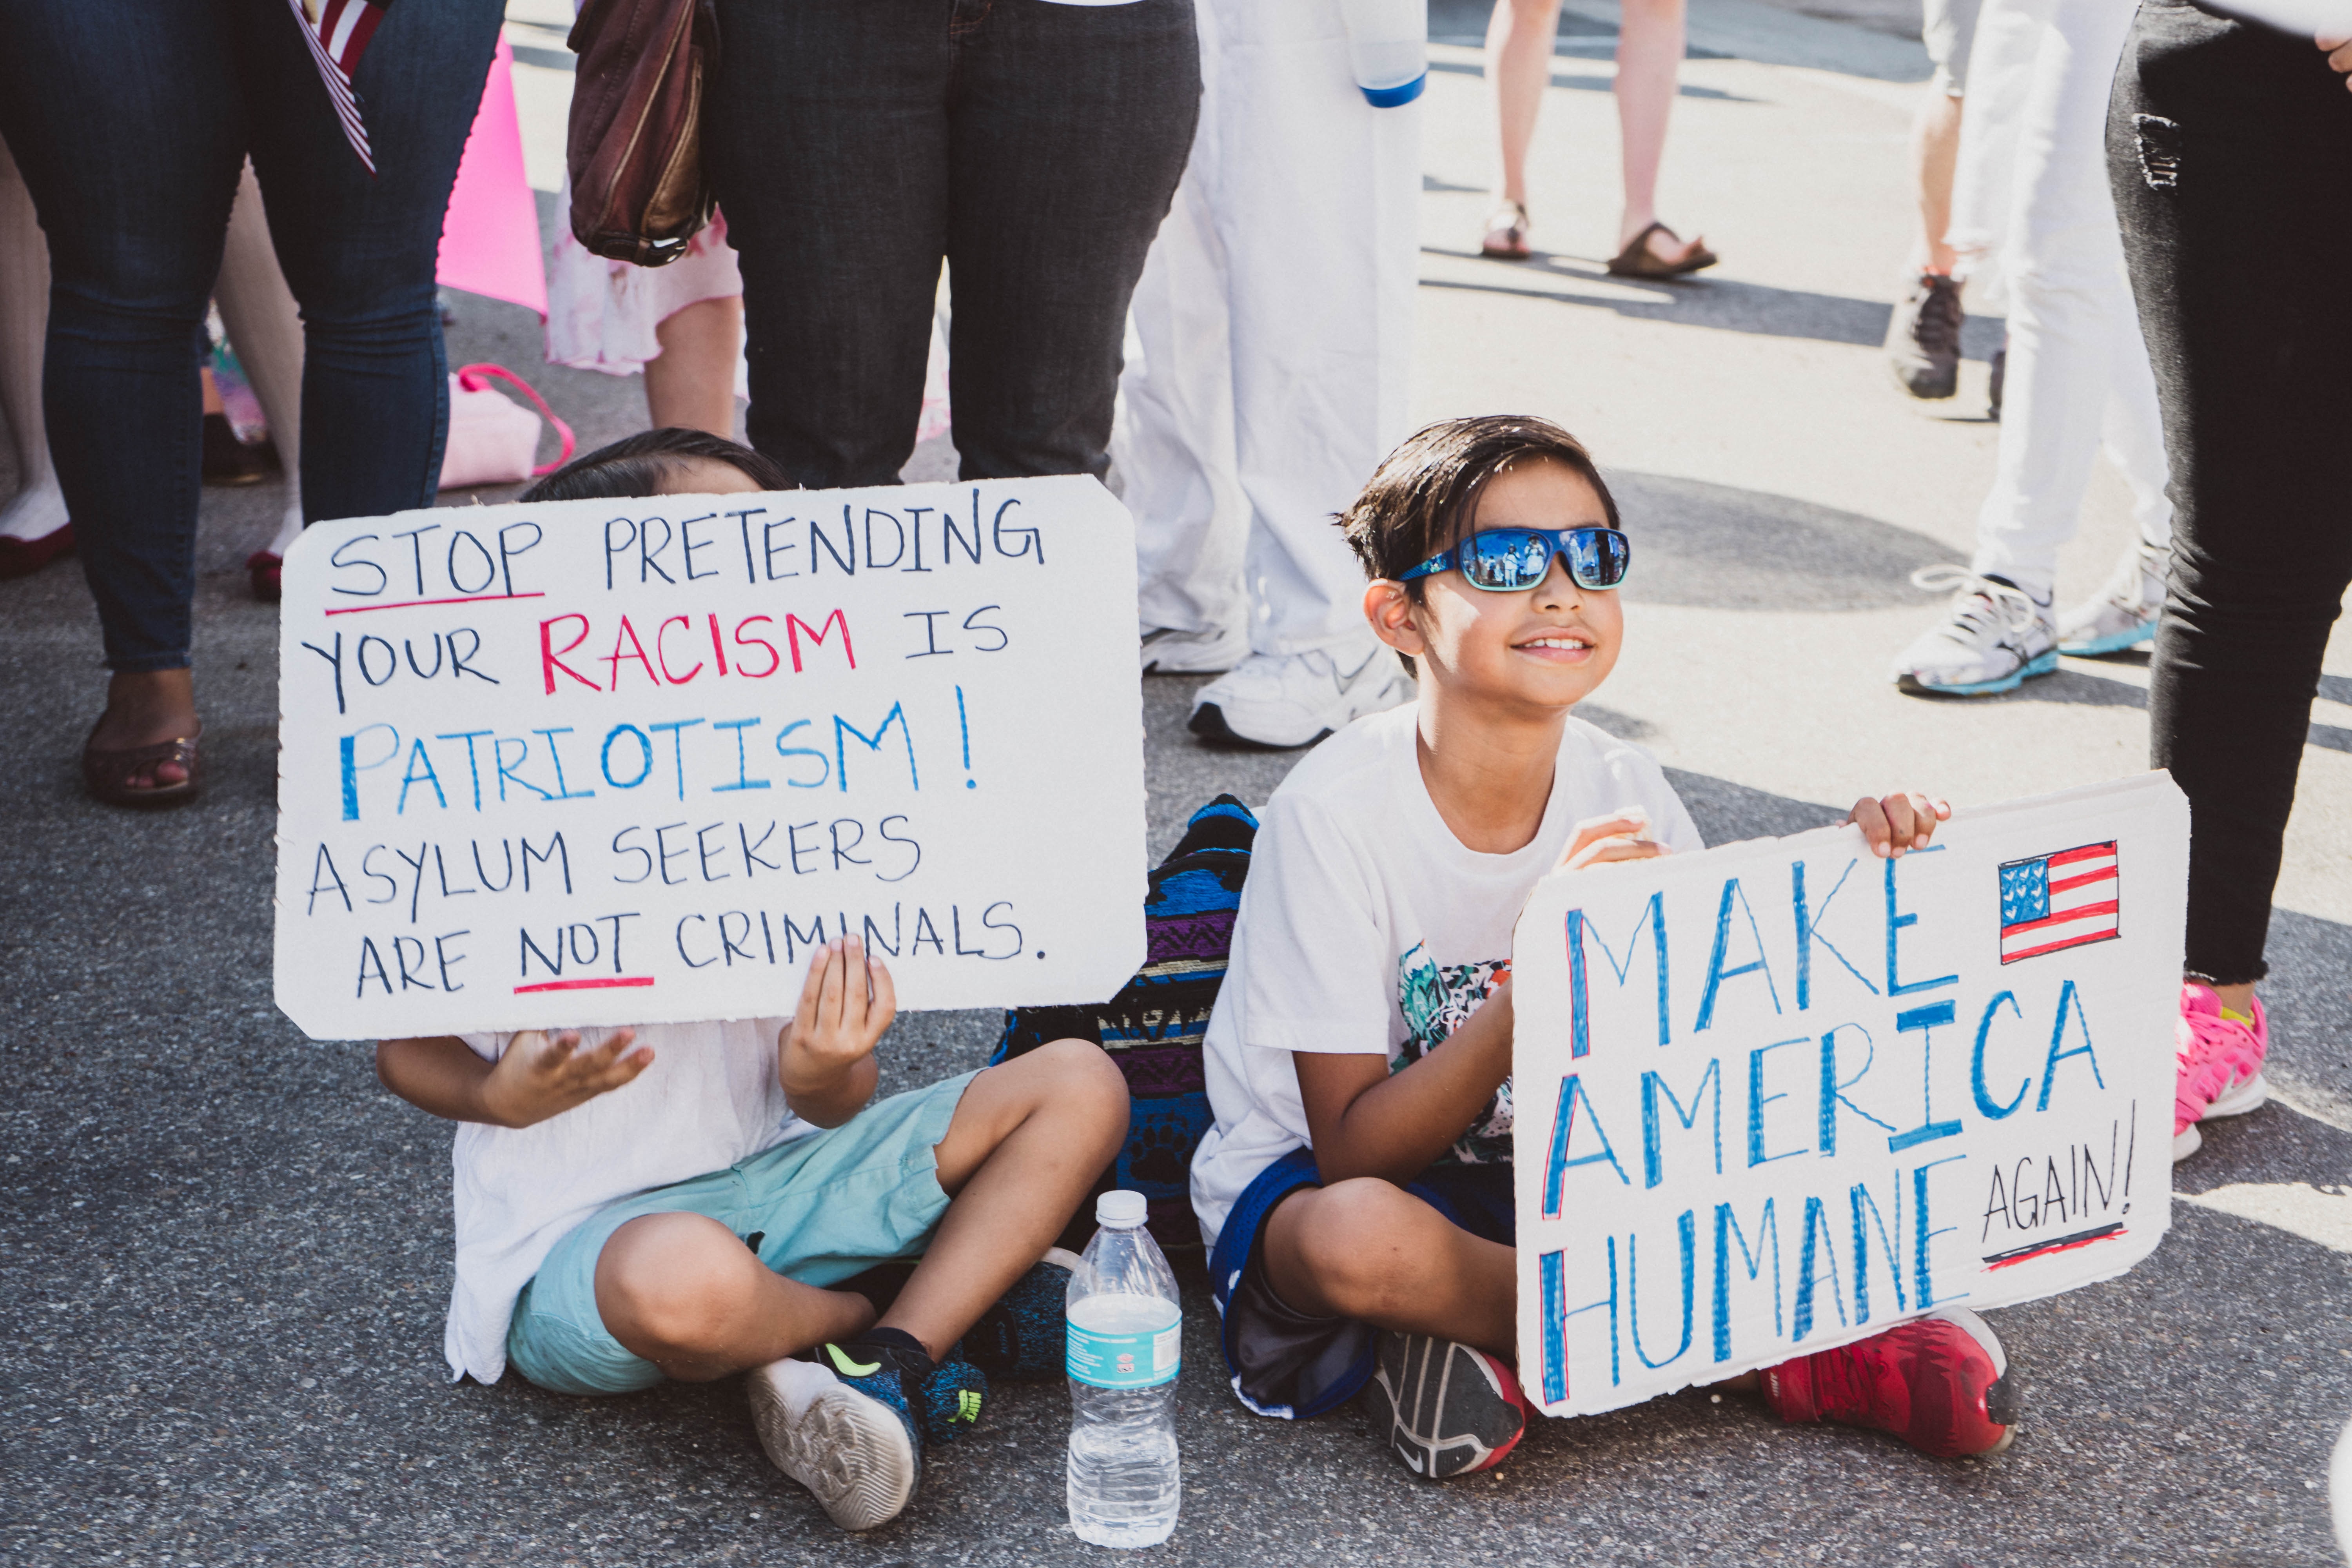 STOP PRETENDING
YOUR RACISM IS
PATRIOTISM!
ASYLUM SEEKERS
ARE NOT CRIMINALS.
MAKE
AMERICA
HUMANE AGAIN!
NIKE